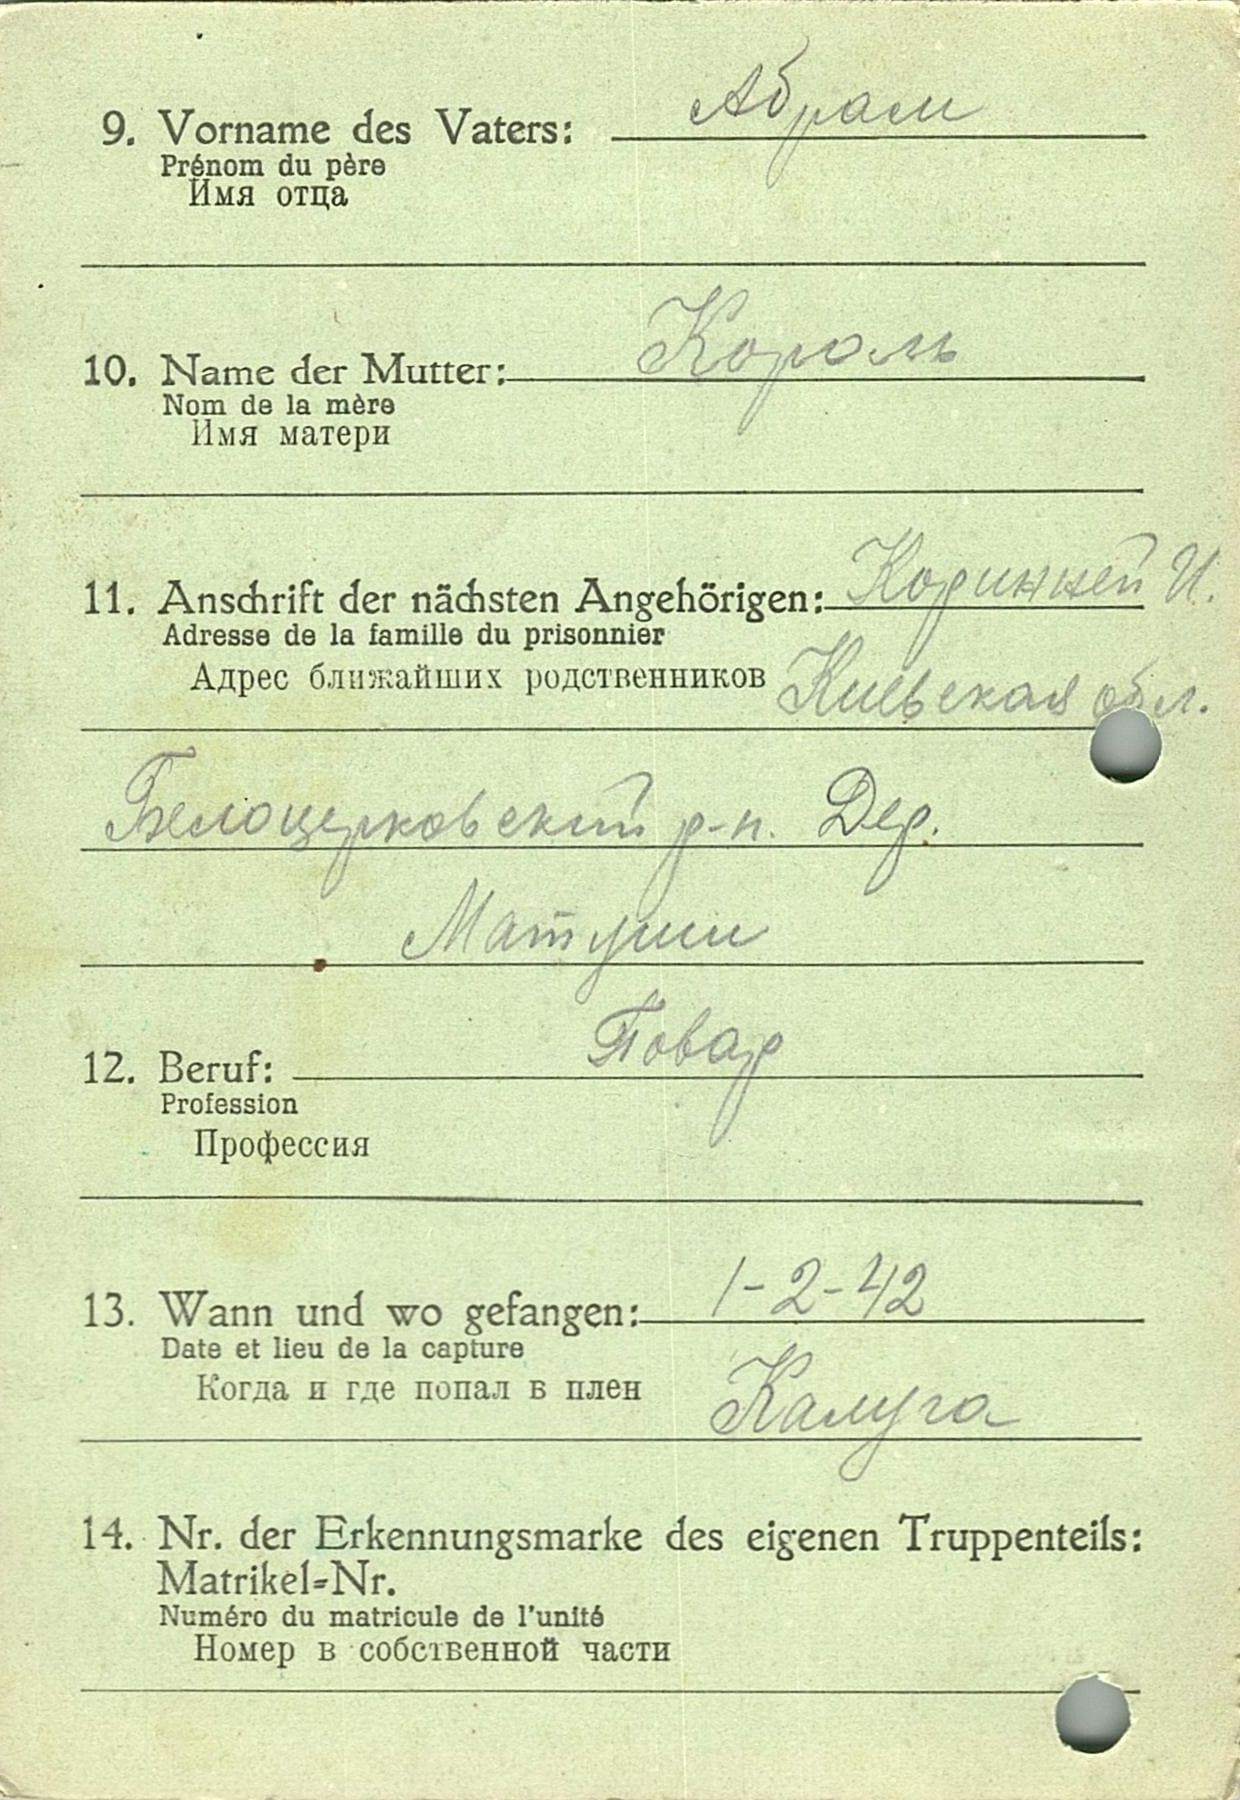 9. Vorname des Vaters: Абрам
Prénom du père
Имя отца
10. Name der Mutter: Король
Nom de la mère
Имя матери
11. Anschrift der nächsten Angehörigen: Коринней И.
Adresse de la famille du prisonnier
Адрес ближайших родственников Киевская обл.
Белоцерковский р-н. Дер.
Матуши
12. Beruf: Повар
Profession
Профессия
13. Wann und wo gefangen: 1-2-42
Date et lieu de la capture
Когда и где попал в плен Калуга
14. Nr. der Erkennungsmarke des eigenen Truppenteils:
Matrikel=Nr.
Numéro du matricule de l'unité
Номер в собственной части